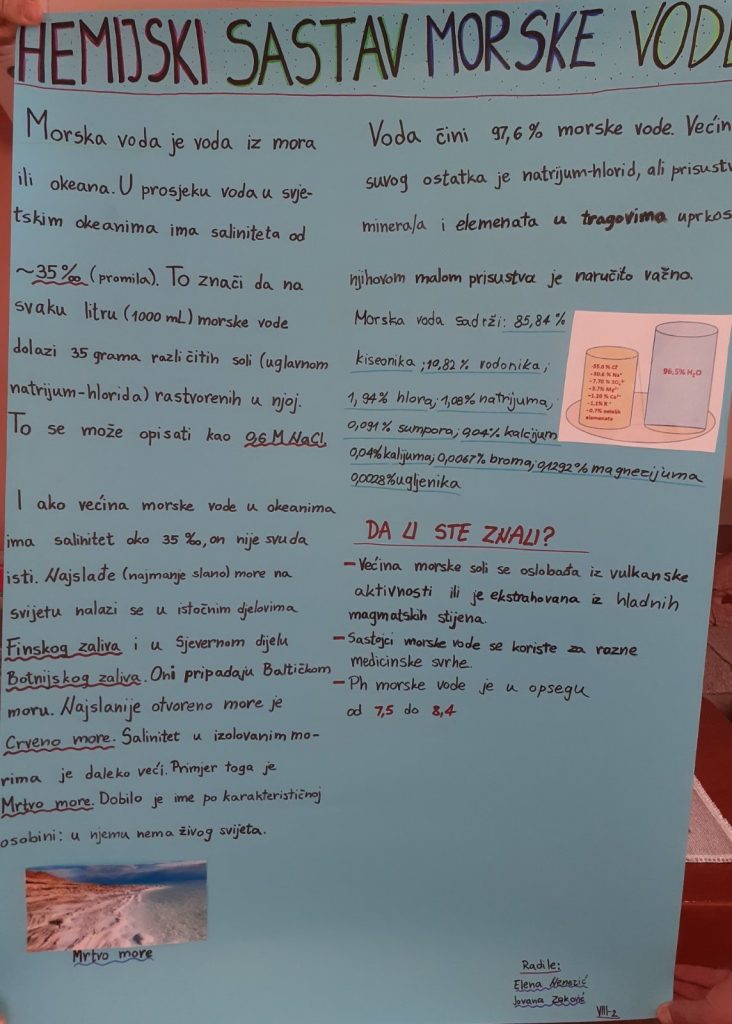 HEMIJSKI SASTAV MORSKE VODE
Morska voda je voda iz mora
ili okeana. U prosjeku voda u svje-
tskim okeanima ima saliniteta od
~35‰ (promila). To znači da na
svaku litru (1000 mL) morske vode
dolazi 35 grama različitih soli (uglavnom
natrijum-hlorida) rastvorenih u njoj.
To se može opisati kao 0,6 M NaCl.
I ako većina morske vode u okeanima
ima salinitet oko 35‰, on nije svuda
isti. Najslađe (najmanje slano) more na
svijetu nalazi se u istočnim djelovima
Finskog zaliva i u Sjevernom dijelu
Botnijskog zaliva. Oni pripadaju Baltičkom
moru. Najslanije otvoreno more je
Crveno more. Salinitet u izolovanim mo-
rima je daleko veći. Primjer toga je
Mrtvo more. Dobilo je ime po karakterističnoj
osobini: u njemu nema živog svijeta.
Mrtvo more
Voda čini 97,6% morske vode. Većin
suvog ostatka je natrijum-hlorid, ali prisustv
minerala i elemenata u tragovima uprkos
njihovom malom prisustva je naručito važno.
Morska voda sadrži: 85,84%
kiseonika; 10,82% vodonika;
1,94% hlora; 1,08% natrijuma,
0,091% sumpora; 0,04% kalcijum
0,04% kalijuma; 0,0067% broma; 0,1292% magnezijuma
0,0028% ugljenika
~55.0 % Cl⁻
~30.6 % Na⁺
~7.70 % SO₄²⁻
~3.7% Mg²⁺
~1.20 % Ca²⁺
~1,1% K⁺
~0.7% ostalih
elemenata
96,5% H₂O
DA LI STE ZNALI?
- Većina morske soli se oslobađa iz vulkanske
aktivnosti ili je ekstrahovana iz hladnih
magmatskih stijena.
- Sastojci morske vode se koriste za razne
medicinske svrhe.
- Ph morske vode je u opsegu
od 7,5 do 8,4
Radile:
Elena Nenezić
Jovana Zeković
VIII-2